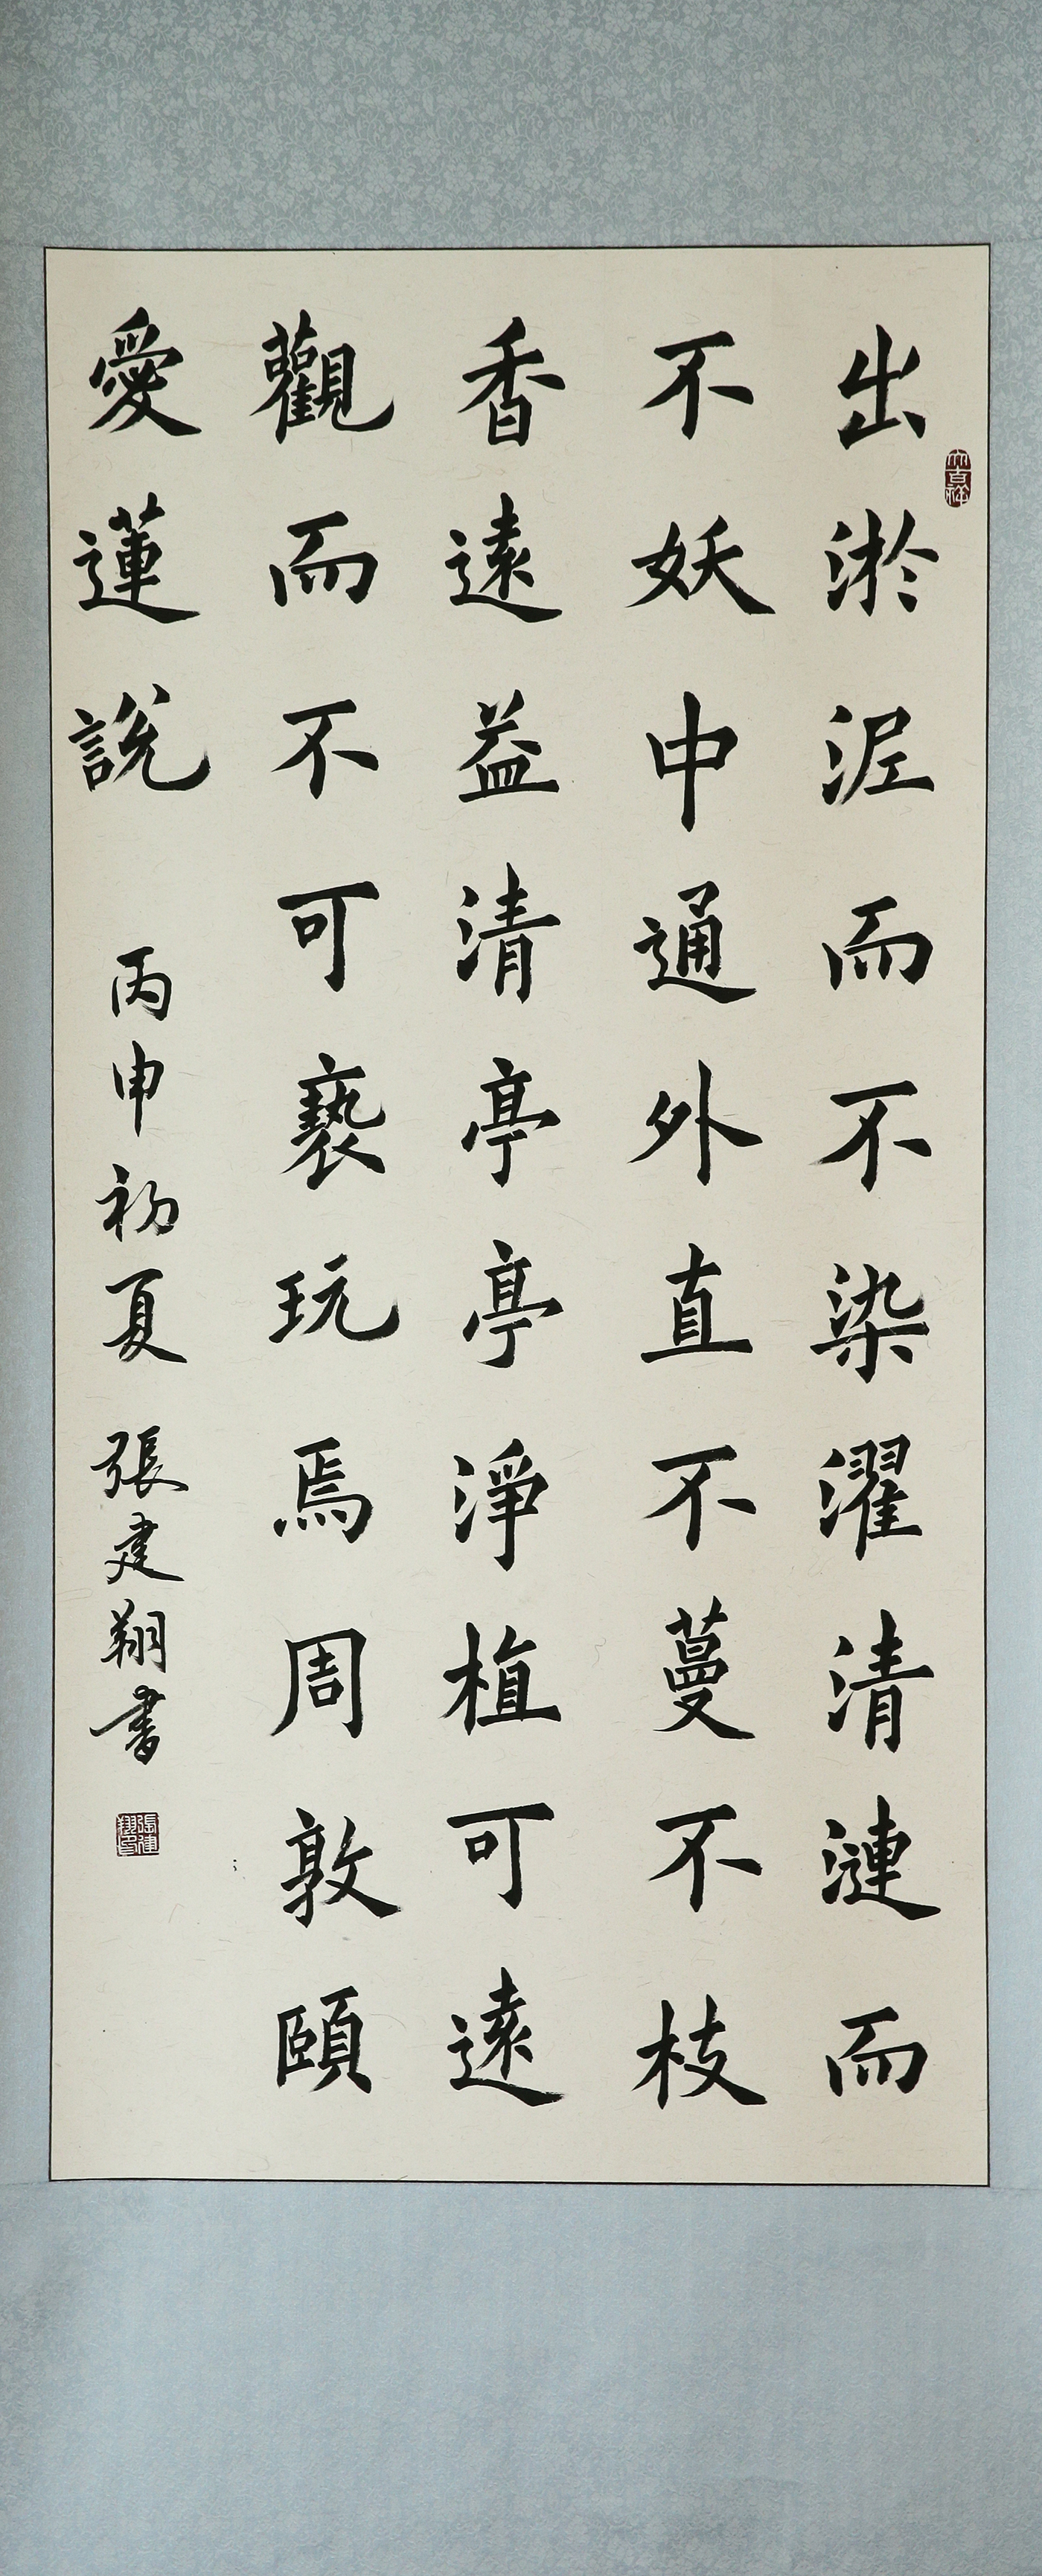 出淤泥而不染濯清漣而
不妖中通外直不蔓不枝
香遠益清亭亭淨植可遠
觀而不可褻玩焉周敦頤
愛蓮說
丙申初夏張建翔書
大吉祥
張建翔印